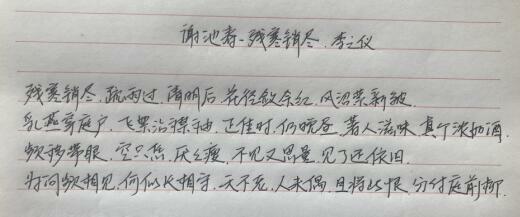 谢池春·残寒销尽 李之仪
残寒销尽,疏雨过,清明后.花径敛余红,风沼萦新皱.
乳燕穿庭户,飞絮沾襟袖.正佳时,仍晚昼.著人滋味,真个浓如酒.
频移带眼,空只恁,厌厌瘦.不见又思量,见了还依旧.
为问频相见,何似长相守.天不老,人未偶.且将此恨,分付庭前柳.